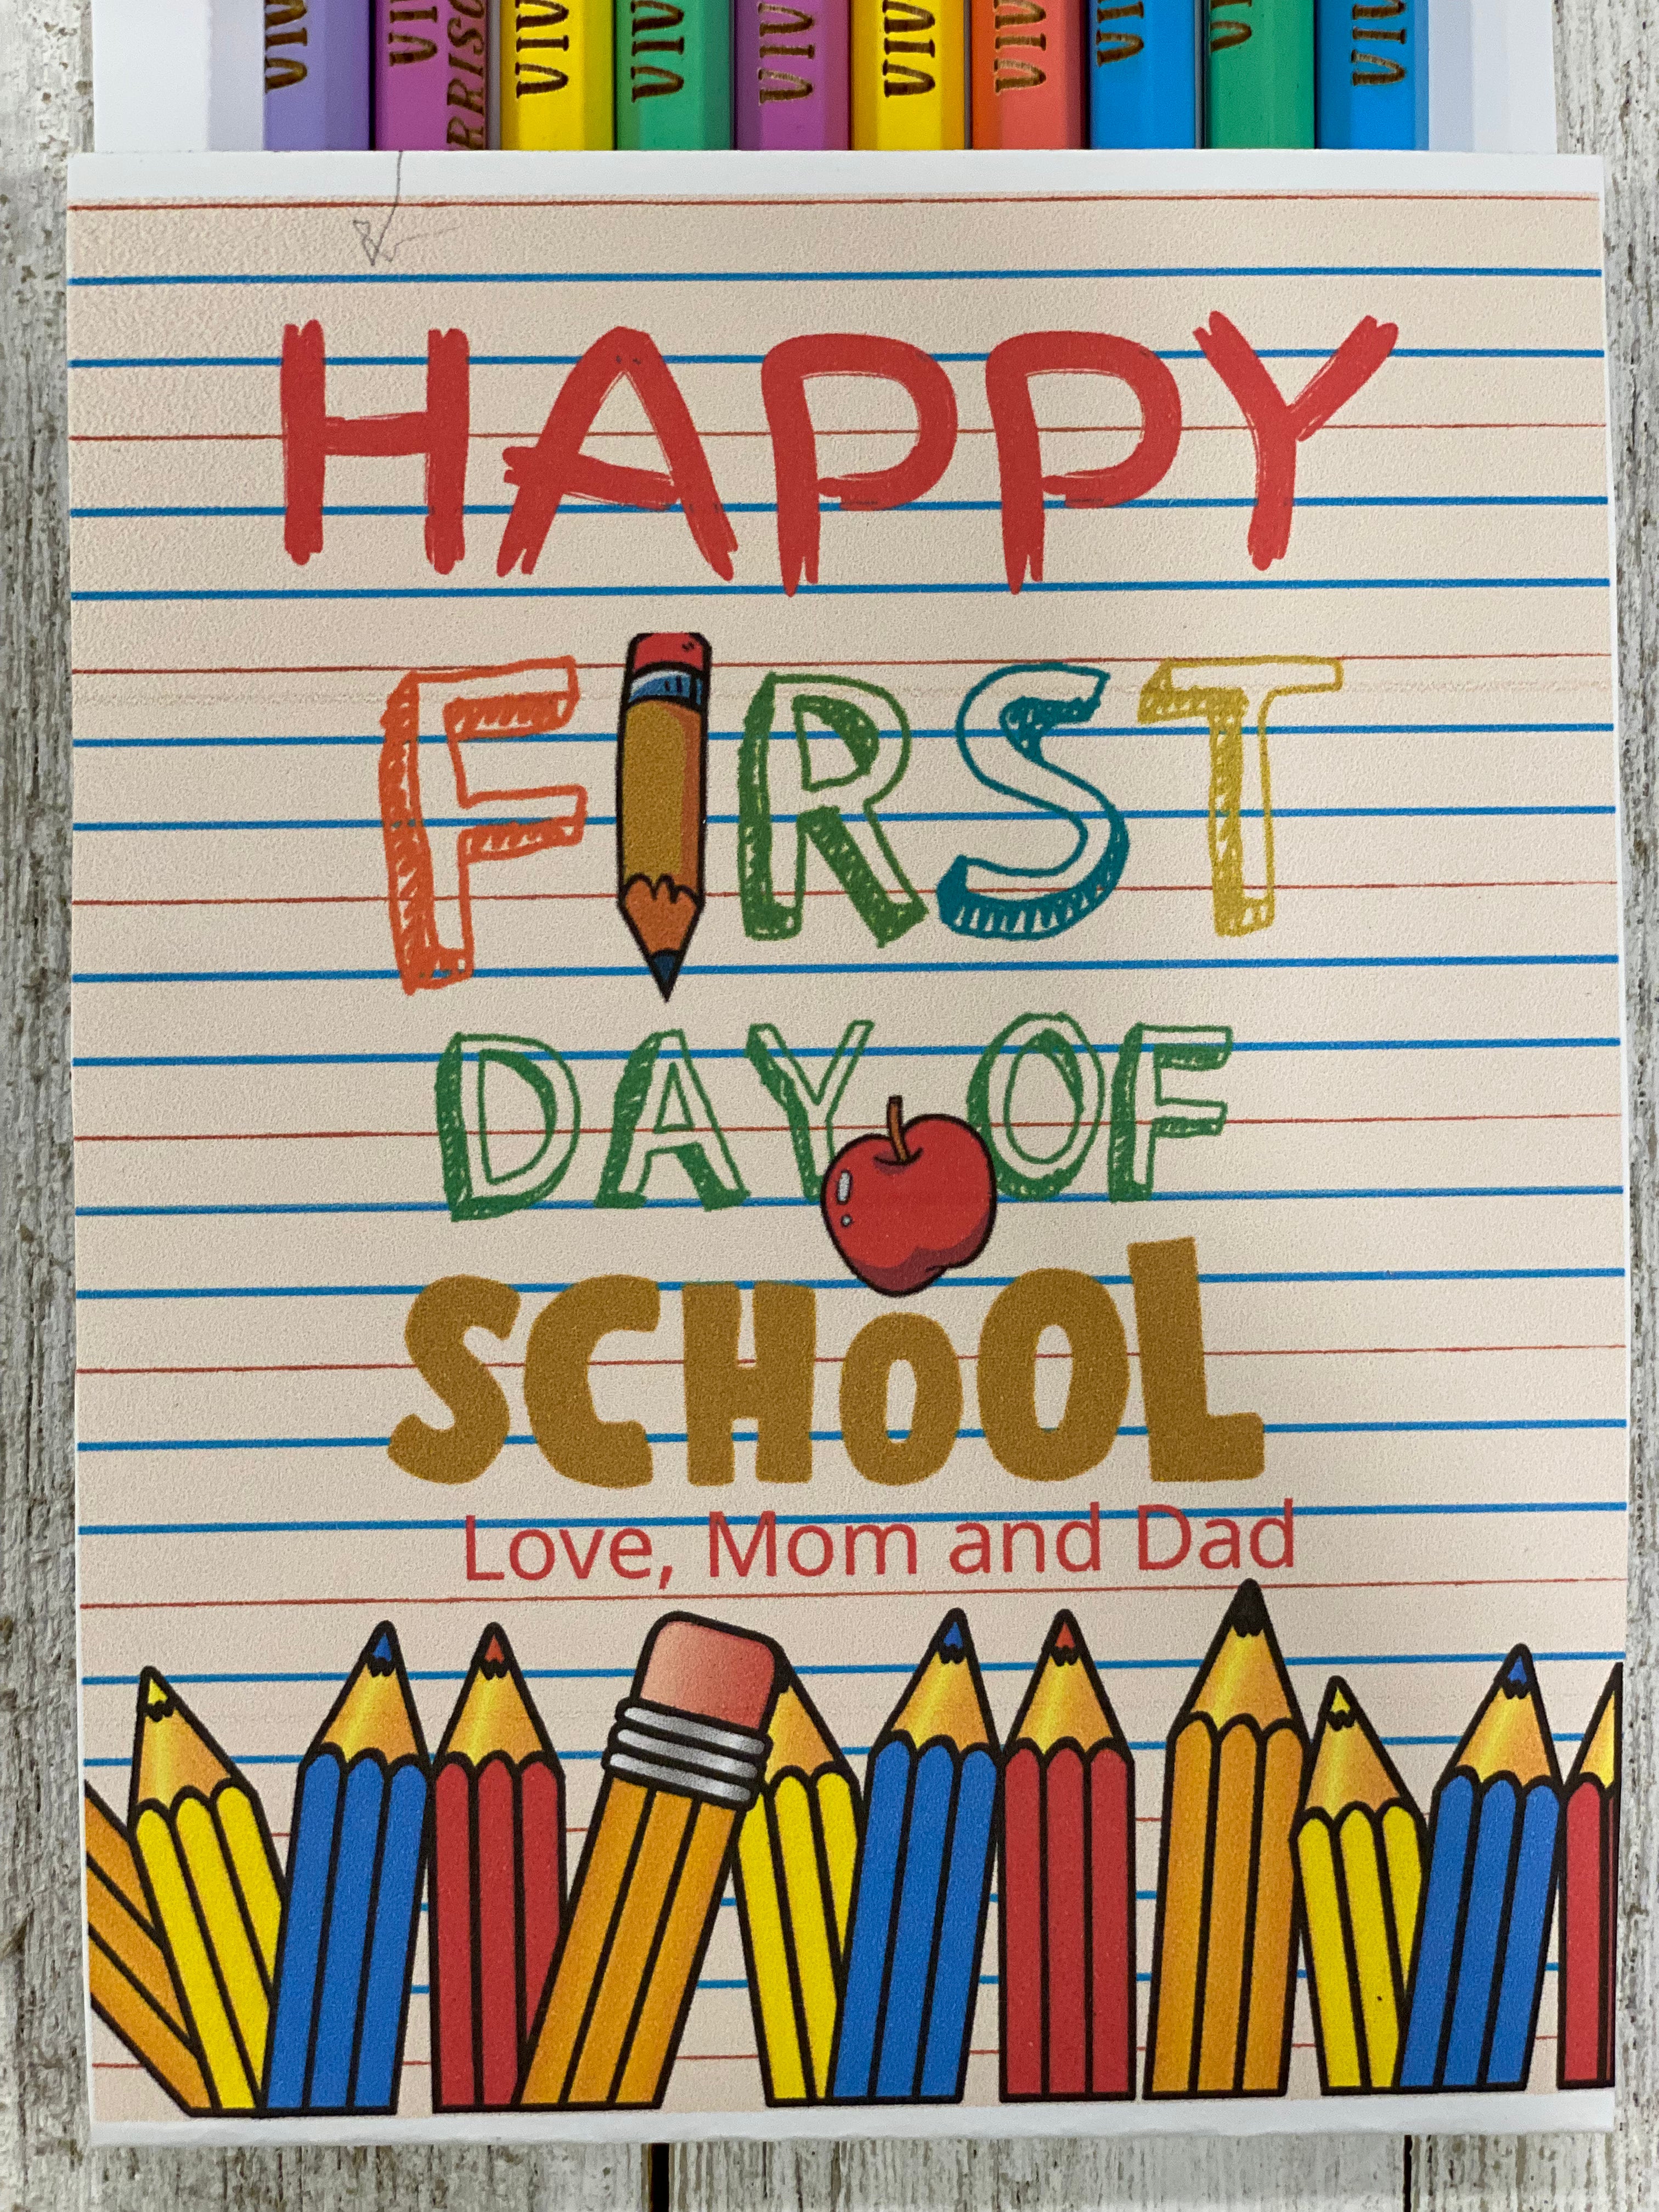 VIV
VIV
RRISO
VIV
VIV
VIV
VIV
VIV
VIV
VIV
VIV
HAPPY
FIRST
DAY OF
SCHOOL
Love, Mom and Dad